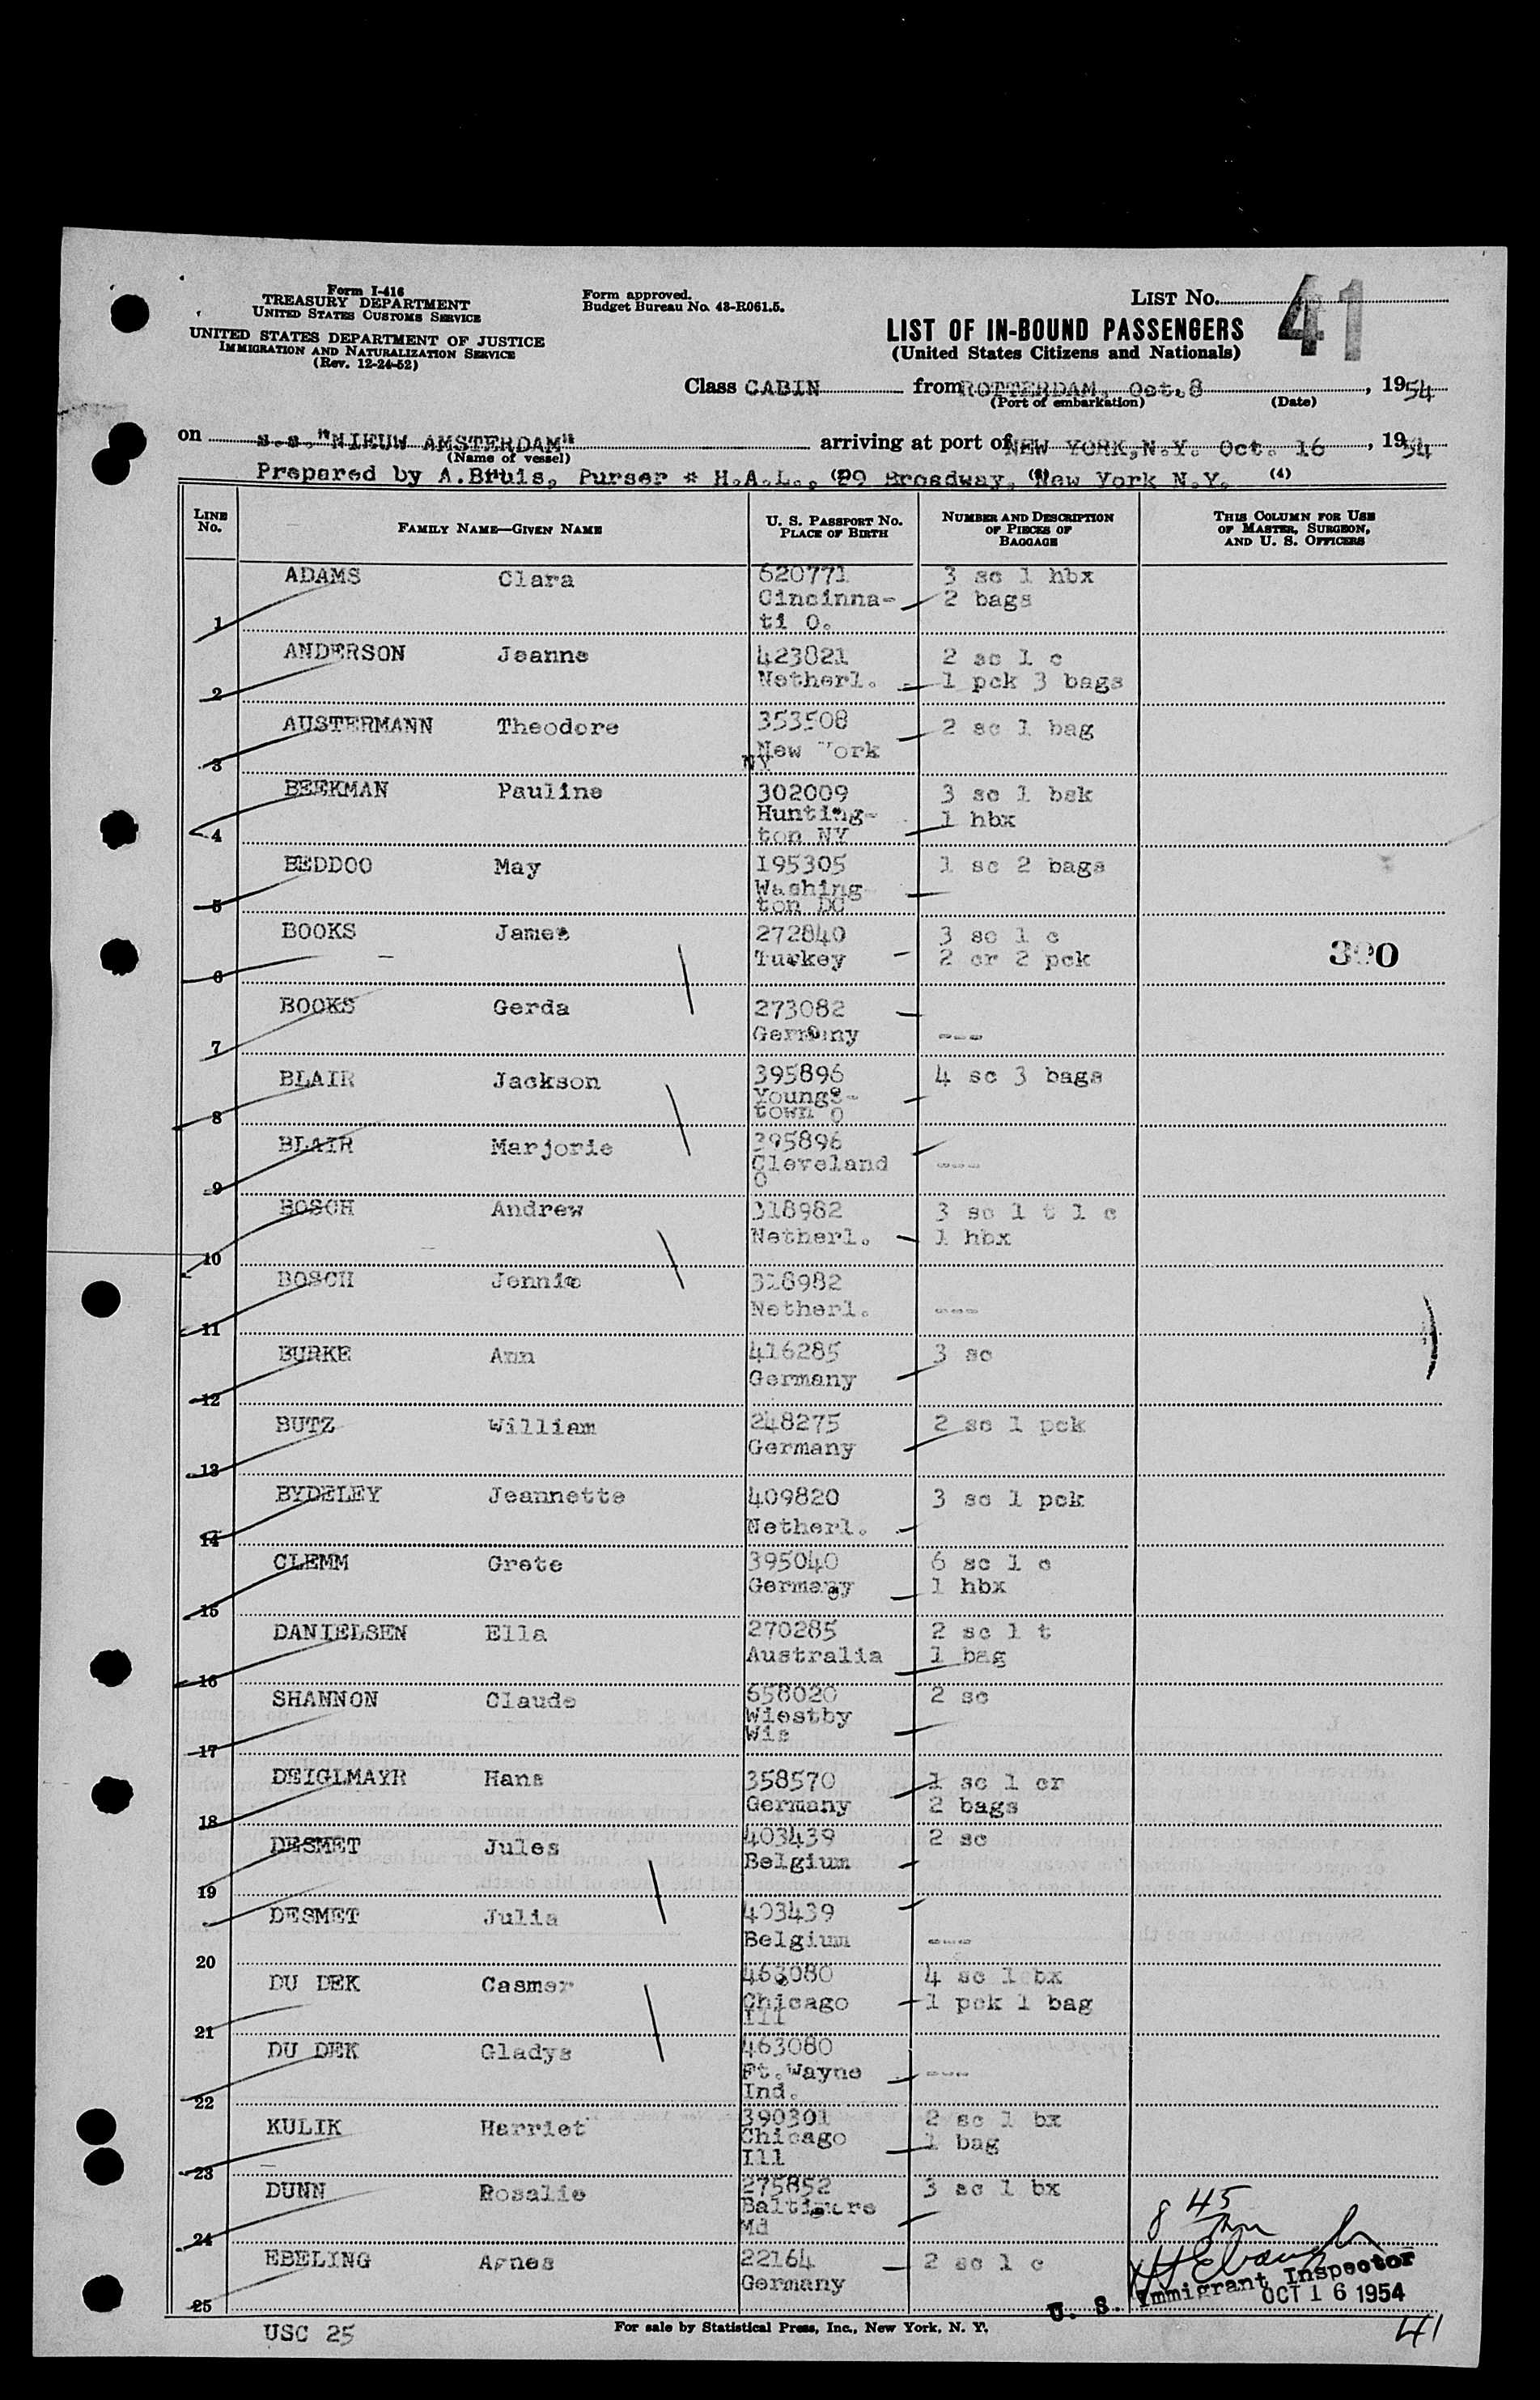 Form I-416
TREASURY DEPARTMENT
UNITED STATES CUSTOMS SERVICE
UNITED STATES DEPARTMENT OF JUSTICE
IMMIGRATION AND NATURALIZATION SERVICE
(Rev. 12-24-52)
Form approved.
Budget Bureau No. 43-R061.5.
LIST No. 41
LIST OF IN-BOUND PASSENGERS
(United States Citizens and Nationals)
Class CABIN from ROTTERDAM, Oct. 8, 1954
(Port of embarkation) (Date)
on s.s. "NIEUW AMSTERDAM" arriving at port of NEW YORK, N.Y. Oct. 16, 1954
(Name of vessel)
Prepared by A.Bruis, Purser * H.A.L., 29 Broadway, New York N.Y. (4)
LINE No. FAMILY NAME—GIVEN NAME U. S. PASSPORT NO. PLACE OF BIRTH NUMBER AND DESCRIPTION OF PIECES OF BAGGAGE THIS COLUMN FOR USE OF MASTER, SURGEON, AND U. S. OFFICERS
ADAMS Clara 620771 3 sc 1 hbx
Cincinna- 2 bags
1 ti O.
ANDERSON Jeanne 423821 2 sc 1 c
2 Netherl. 1 pck 3 bags
AUSTERMANN Theodore 353508 2 sc 1 bag
3 New York
NY
BEEKMAN Pauline 302009 3 sc 1 bsk
Hunting- 1 hbx
4 ton NY
BEDDOO May 195305 1 sc 2 bags
Washing
5 ton DC
BOOKS James 272840 3 sc 1 c
6 Turkey 2 cr 2 pck 390
BOOKS Gerda 273082
7 Germany ---
BLAIR Jackson 395896 4 sc 3 bags
Youngs-
8 town O
BLAIR Marjorie 395896
Cleveland ---
9 O
BOSCH Andrew 318982 3 sc 1 t 1 c
10 Netherl. 1 hbx
BOSCH Jennie 318982
11 Netherl. ---
BURKE Ann 416285 3 sc
12 Germany
BUTZ William 248275 2 sc 1 pck
13 Germany
BYDELEY Jeannette 409820 3 sc 1 pck
14 Netherl.
CLEMM Grete 395040 6 sc 1 c
15 Germany 1 hbx
DANIELSEN Ella 270285 2 sc 1 t
16 Australia 1 bag
SHANNON Claude 658020 2 sc
Wiestby
17 Wis
DEIGLMAYR Hans 358570 1 sc 1 cr
18 Germany 2 bags
DESMET Jules 403439 2 sc
19 Belgium
DESMET Julia 403439
20 Belgium ---
DU DEK Casmer 463080 4 sc 1 bx
Chicago 1 pck 1 bag
21 Ill
DU DEK Gladys 463080
Ft.Wayne ---
22 Ind.
KULIK Harriet 390301 2 sc 1 bx
Chicago 1 bag
23 Ill
DUNN Rosalie 275852 3 sc 1 bx
Baltimore
24 Md
8 45
EBELING Agnes 22164 2 sc 1 c
25 Germany
U. S. Immigrant Inspector
OCT 16 1954
USC 25
For sale by Statistical Press, Inc., New York, N. Y.
41